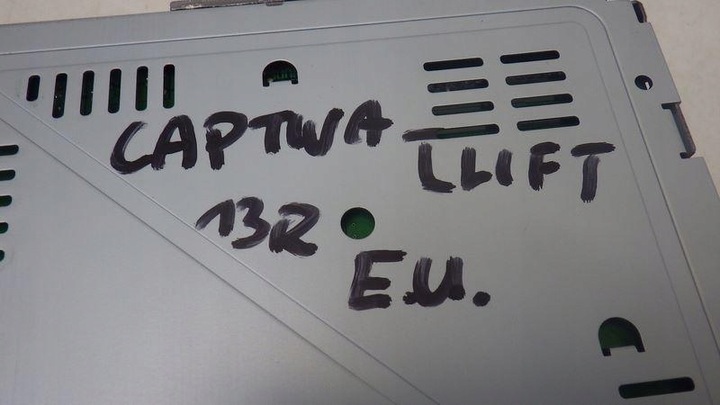 CAPTIVA LLIFT
13R
E.U.